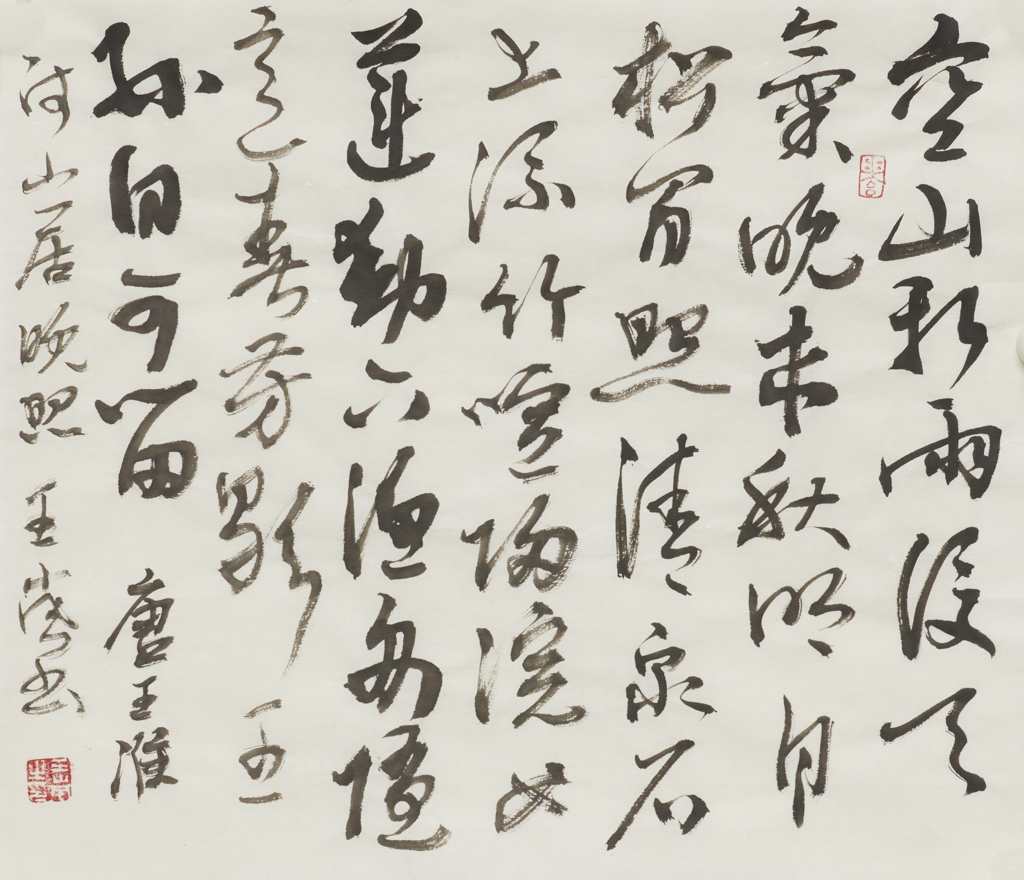 空山新雨後天
氣晚来秋明月
松间照清泉石
上流竹喧歸浣女
蓮動下渔舟随
意春芳歇王
孫自可留 唐王維
诗山居晚照 王书